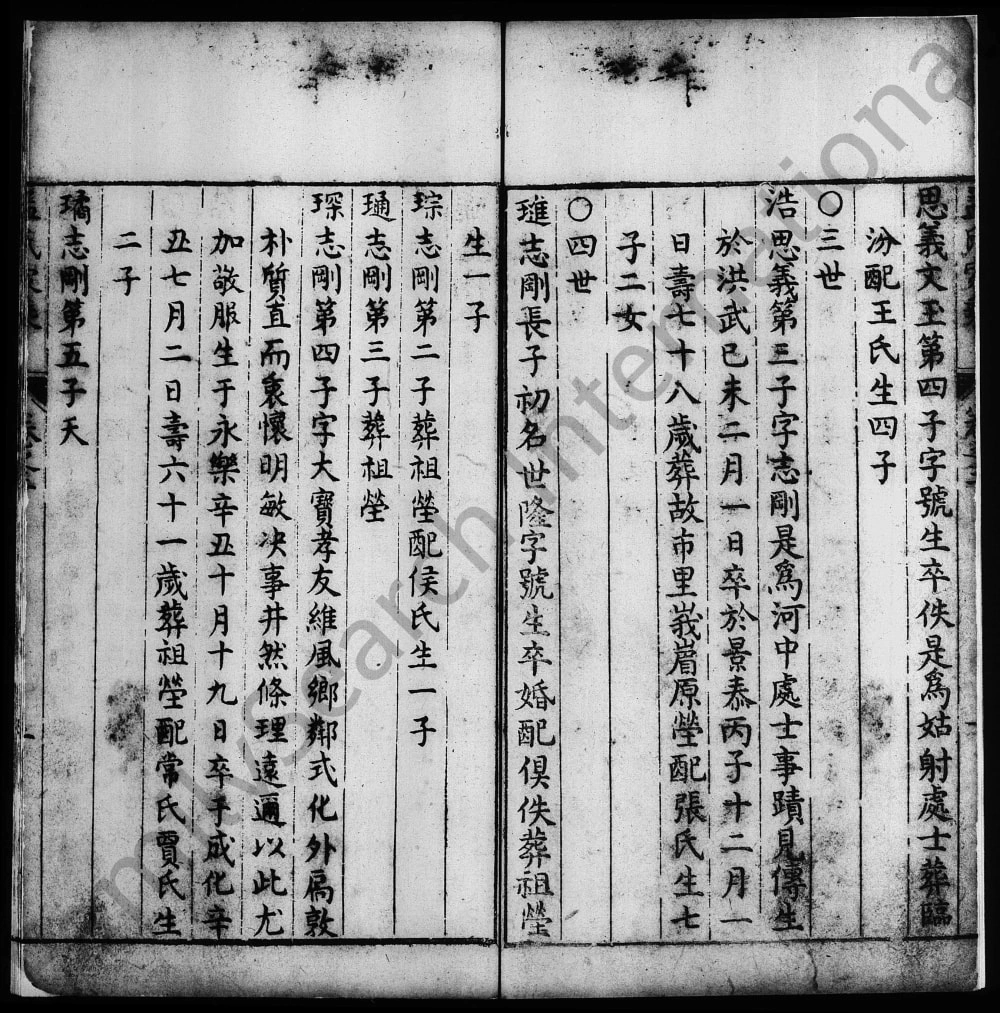 思義文玉第四子字號生卒佚是爲姑射處士葬臨
汾配王氏生四子
〇三世
浩思義第三子字志剛是爲河中處士事蹟見傳生
於洪武己未二月一日卒於景泰丙子十二月一
日壽七十八歲葬故市里峩嵋原塋配張氏生七
子二女
〇四世
璡志剛長子初名世隆字號生卒婚配俱佚葬祖塋
琮志剛第二子葬祖塋配侯氏生一子
通志剛第三子葬祖塋
生一子
琛志剛第四子字大寶孝友維風鄉鄰式化外扃敦
朴質直而衷懷明敏决事井然條理遠邇以此尤
加敬服生于永樂辛丑十月十九日卒于成化辛
丑七月二日壽六十一歲葬祖塋配常氏賈氏生
二子
璚志剛第五子夭
mlvsearch International